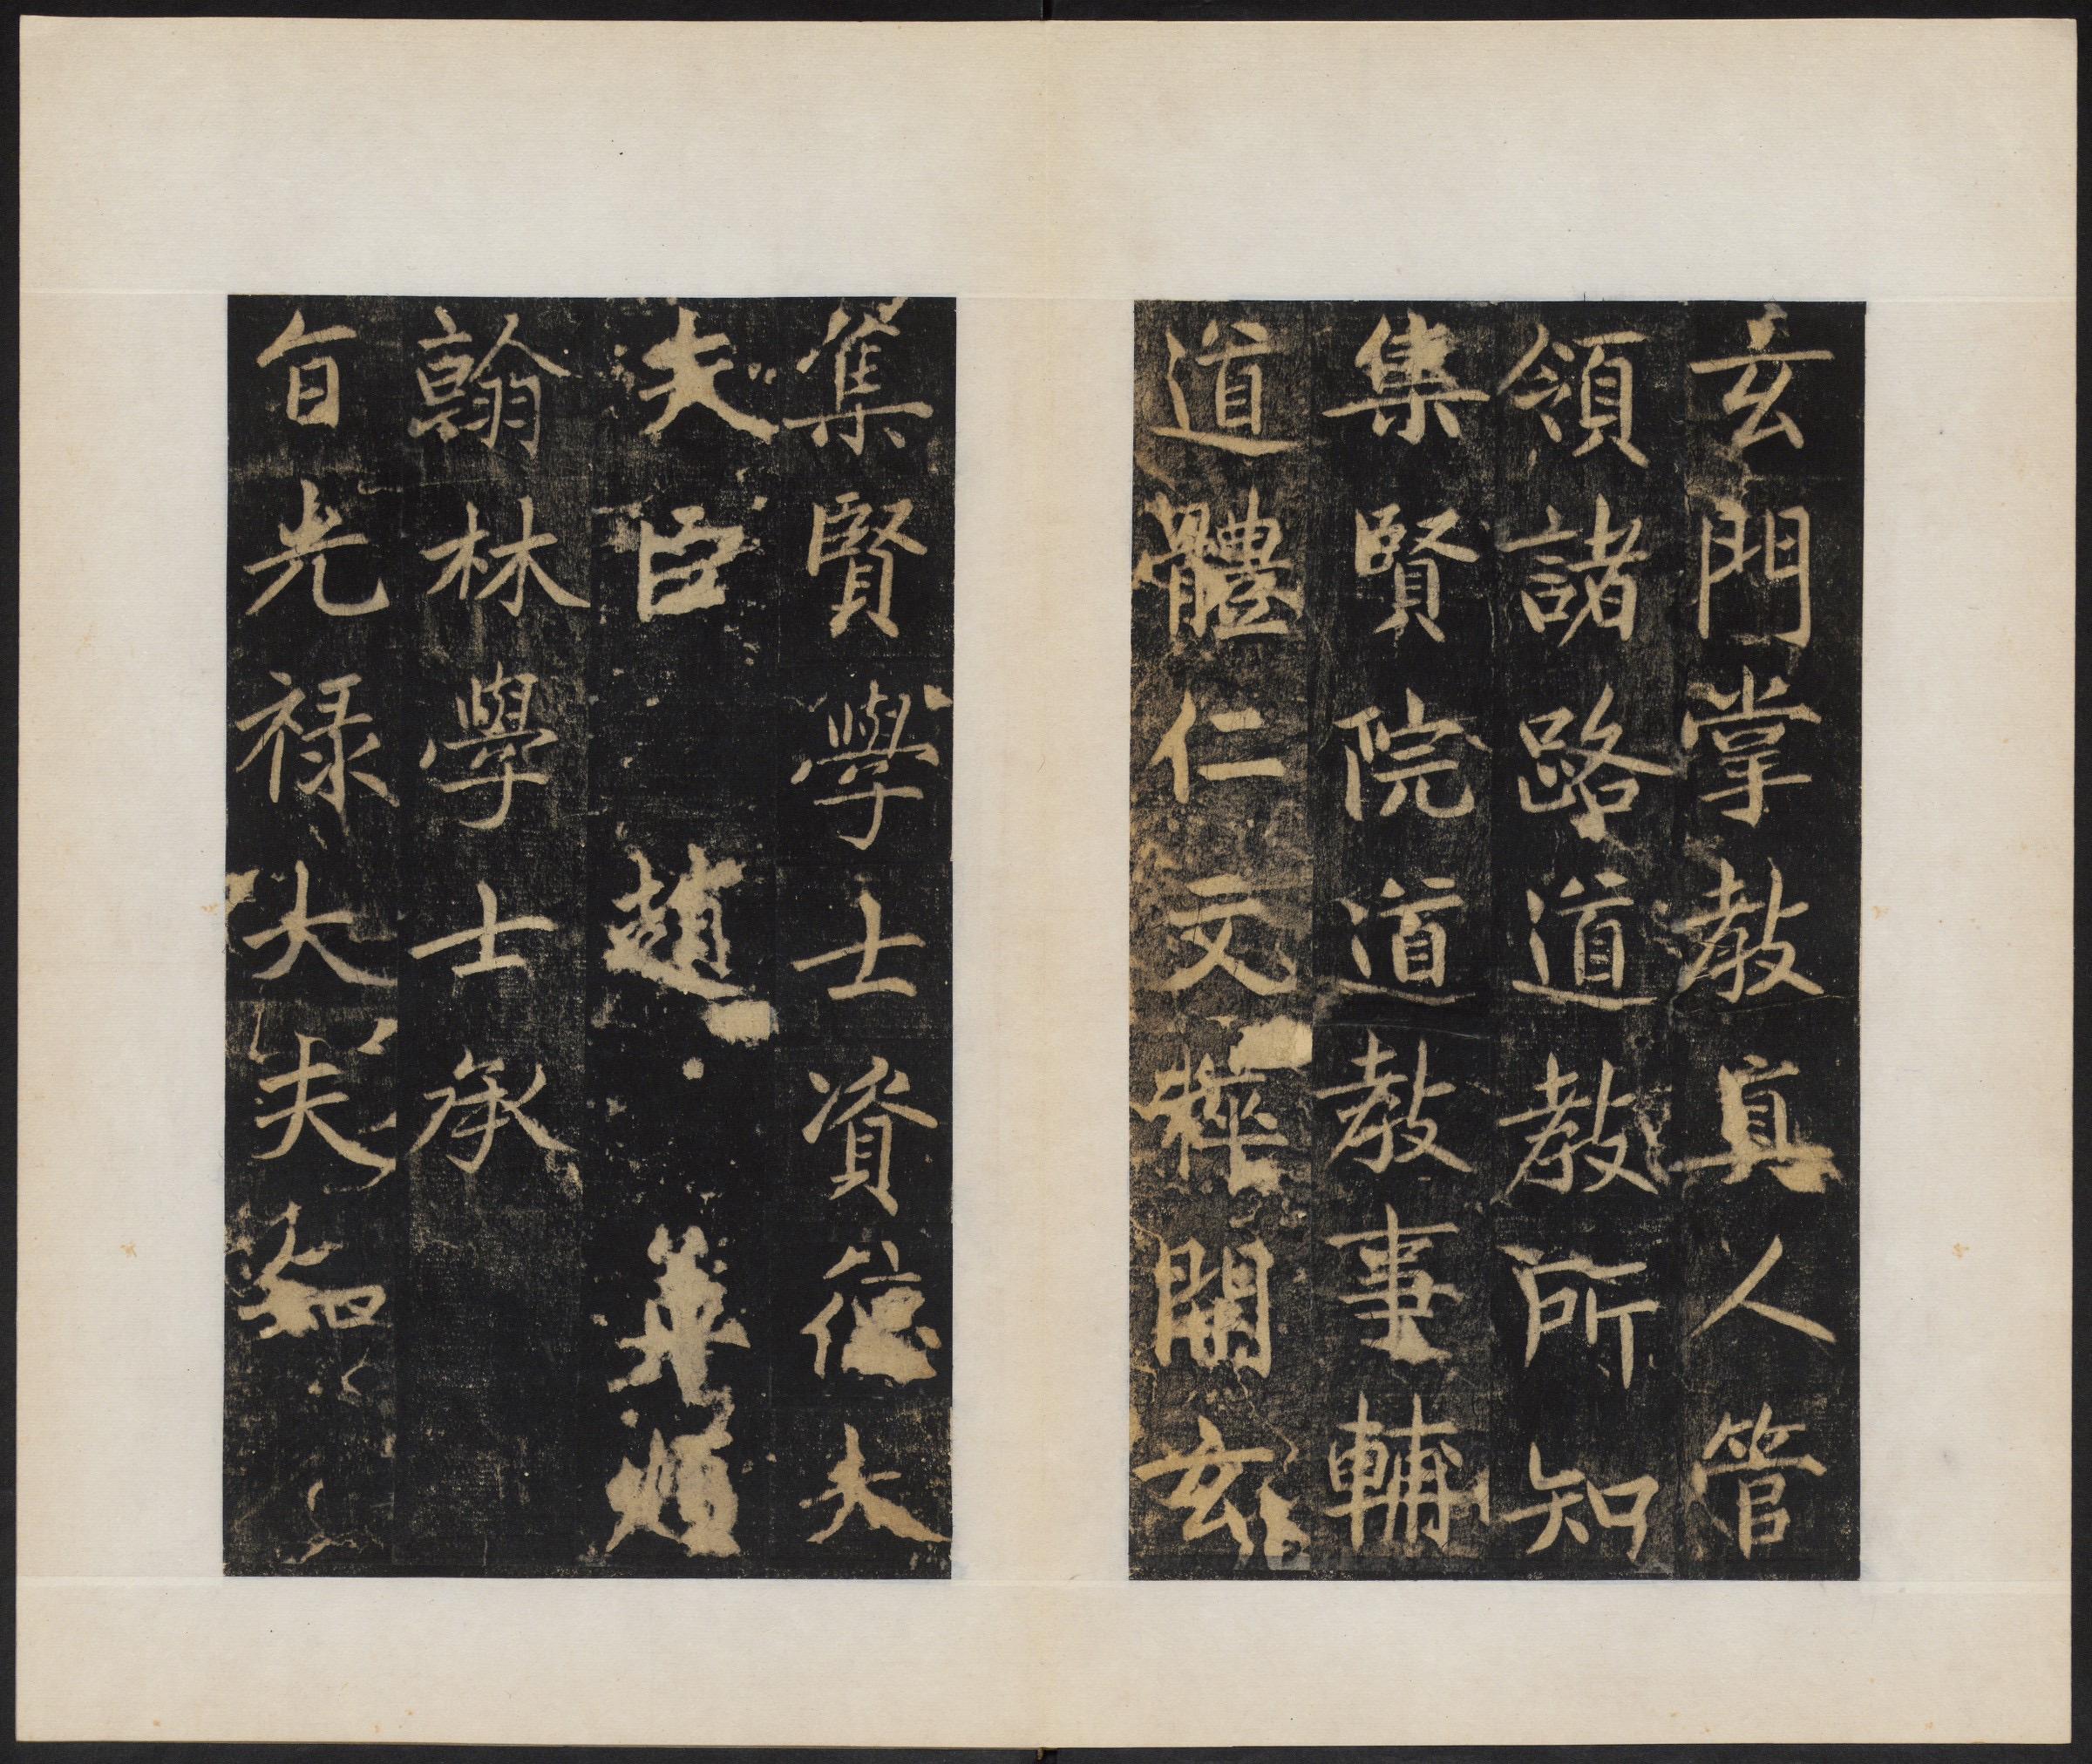 玄門掌教真人管
領諸路道教所知
集賢院道教事輔
道體仁文粹開玄
集賢學士資德大
夫臣 趙孟頫
翰林學士承
旨光禄大夫知